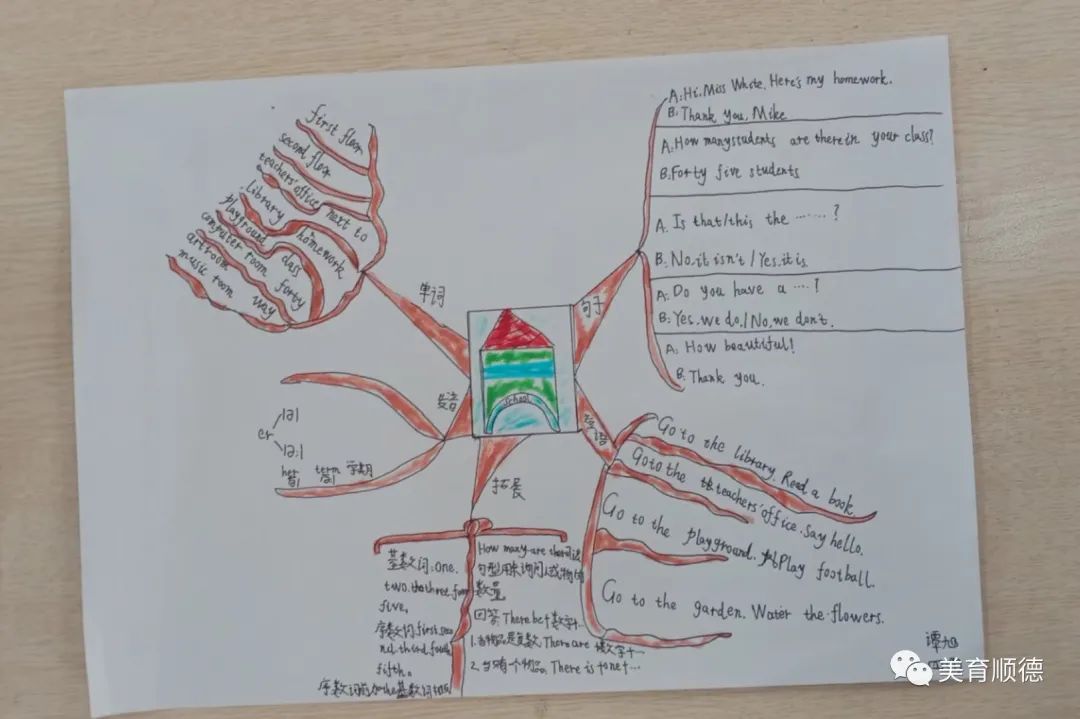 first floor
second floor
teachers' office
next to
library
homework
playground
class
computer room
forty
art room
way
music room
单词
句子
A: Hi. Miss White. Here's my homework.
B: Thank you, Mike
A: How many students are there in your class?
B: Forty five students
A. Is that/this the ……?
B. No, it isn't / Yes, it is
A: Do you have a …?
B: Yes. we do. / No, we don't.
A: How beautiful!
B: Thank you.
school
发音
er
|ə|
|ə:|
her
term 学期
拓展
基数词: one.
two. three. four
five,
序数词: first. seco
nd. third. fourth
fifth。
How many are there
句型用来询问人或物的
数量
回答: There be + 数字 + …
1. 当物品是复数, There are
2. There is + one + …
Go to the library. Read a book.
Go to the teachers' office. Say hello.
Go to the playground. Play football.
Go to the garden. Water the flowers.
谭旭
美育顺德